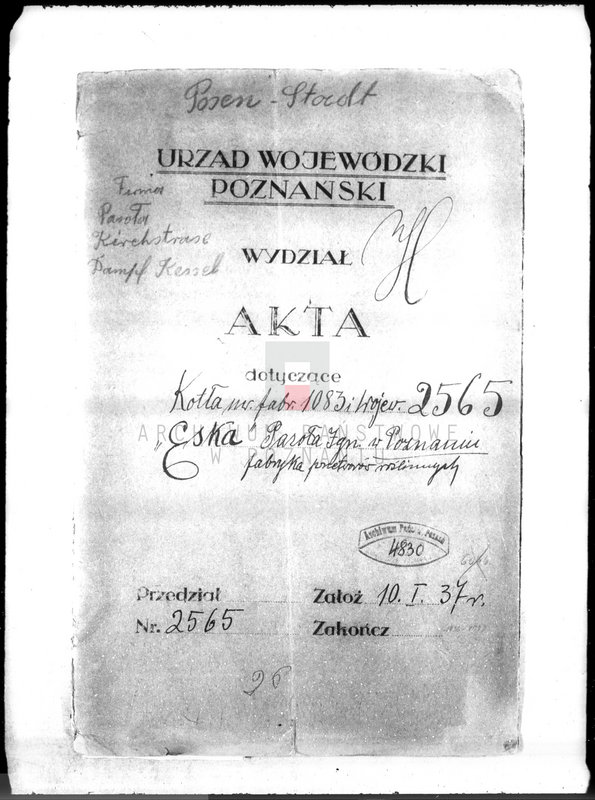 Posen - Stadt
URZĄD WOJEWÓDZKI
POZNAŃSKI
Firma
Paroła
Kirchstrase
Dampf Kessel
WYDZIAŁ H
AKTA
dotyczące
Kotła nr. fabr. 1083 i Wojew. 2565
"Eska" Paroła Ign. w Poznaniu
fabryka przetworów roślinnych
ARCHIWUM PAŃSTWOWE
W POZNANIU
Archiwum Państw. Poznań
4830
Przedział
Założ 10. I. 37 r.
Nr. 2565
Zakończ
26